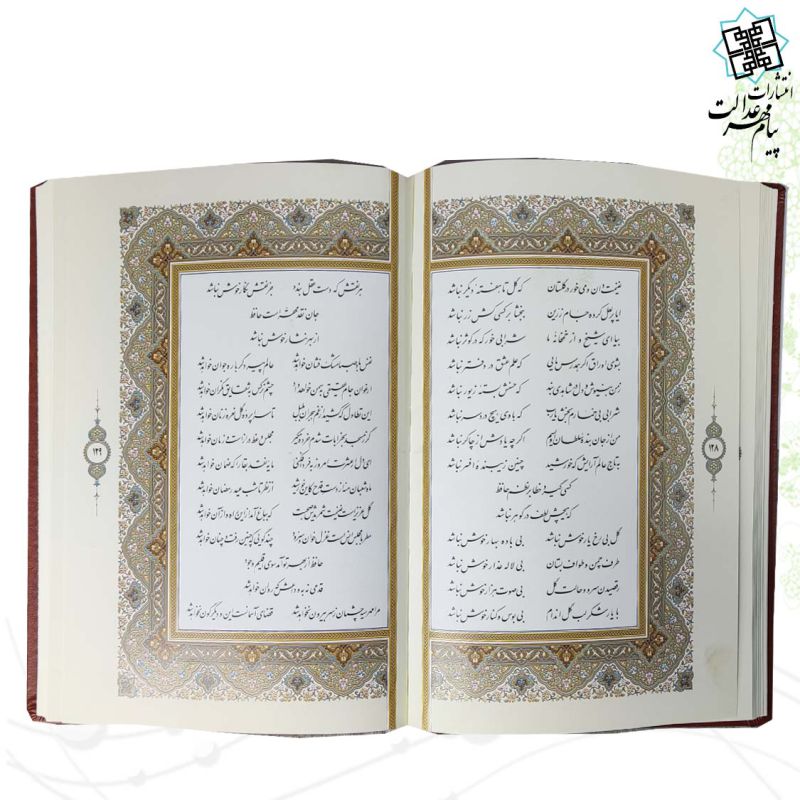 انتشارات
پیام مهر عدالت
غنیمت دان و می خور در گلستان که گل تا هفته دیگر نباشد
ایا پر لعل کرده جام زرین ببخشا بر کسی کش زر نباشد
بیا ای شیخ و از خمخانه ما شرابی خور که در کوثر نباشد
بشوی اوراق اگر همدرس مایی که علم عشق در دفتر نباشد
ز من بنیوش و دل در شاهدی بند که حسنش بسته زیور نباشد
شرابی بی خمارم بخش یارب که با وی هیچ درد سر نباشد
من از جان بنده سلطان اویسم اگر چه یادش از چاکر نباشد
به تاج عالم آرایش که خورشید چنین زیبنده افسر نباشد
کسی گیرد خطا بر نظم حافظ
که هیچش لطف در گوهر نباشد
گل بی رخ یار خوش نباشد بی باده بهار خوش نباشد
طرف چمن و طواف بستان بی لاله عذار خوش نباشد
رقصیدن سرو و حالت گل بی صوت هزار خوش نباشد
با یار شکر لب گل اندام بی بوس و کنار خوش نباشد
۱۲۸
هر نقش که دست عقل بندد جز نقش نگار خوش نباشد
جان نقد محقر است حافظ
از بهر نثار خوش نباشد
نفس باد صبا مشک فشان خواهد شد عالم پیر دگر باره جوان خواهد شد
ارغوان جام عقیقی به سمن خواهد داد چشم نرگس به شقایق نگران خواهد شد
این تطاول که کشید از غم هجران بلبل تا سراپرده گل نعره زنان خواهد شد
گر ز مسجد به خرابات شدم خرده مگیر مجلس وعظ دراز است و زمان خواهد شد
ای دل ار عشرت امروز به فردا فکنی مایه نقد بقا را که ضمان خواهد شد
ماه شعبان منه از دست قدح کاین خورشید از نظر تا شب عید رمضان خواهد شد
گل عزیز است غنیمت شمریدش صحبت که به باغ آمد از این راه و از آن خواهد شد
مطربا مجلس انس است غزل خوان و سرود چند گویی که چنین رفت و چنان خواهد شد
حافظ از بهر تو آمد سوی اقلیم وجود
قدمی نه به وداعش که روان خواهد شد
مرا مهر سیه چشمان ز سر بیرون نخواهد شد قضای آسمانست این و دیگرگون نخواهد شد
۱۲۹